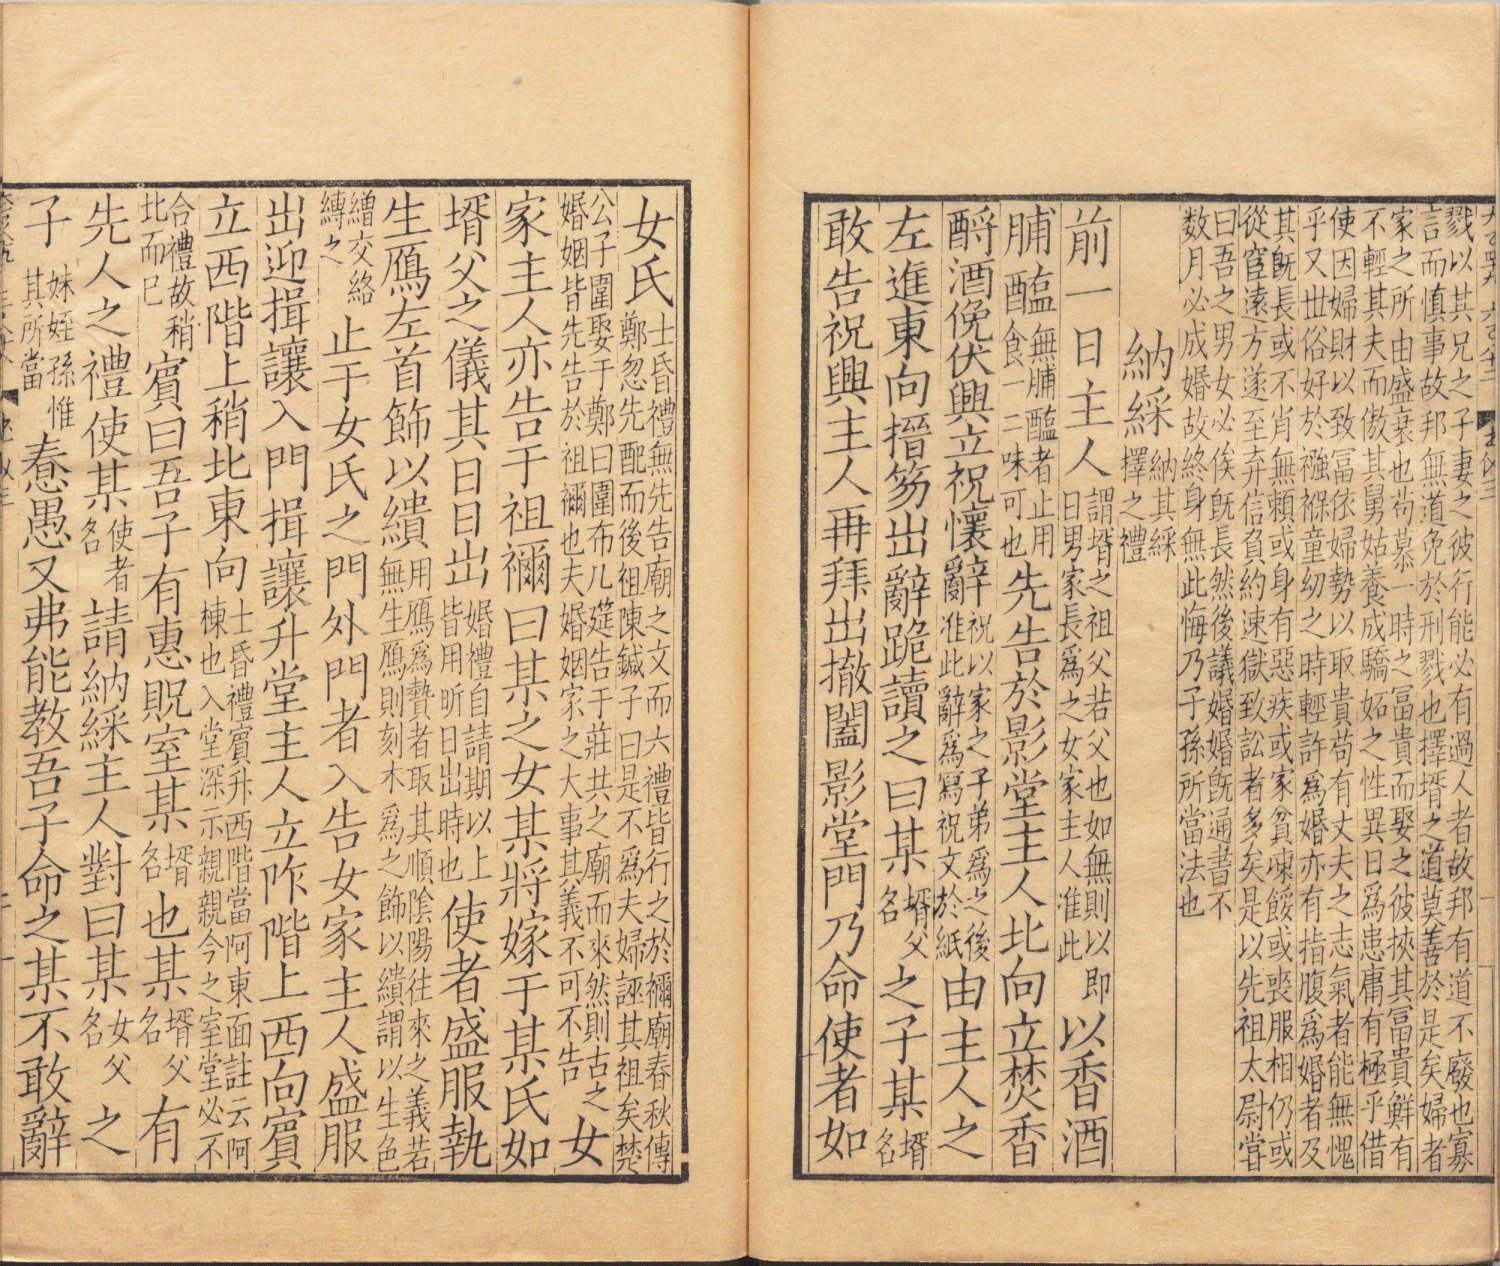 戮以其兄之子妻之彼行能必有過人者故邦有道不廢也寡
言而慎事故邦無道免於刑戮也擇壻之道莫善於是矣婦者
家之所由盛衰也苟慕一時之冨貴而娶之彼挾其冨貴鮮有
不輕其夫而傲其舅姑養成驕妬之性異日爲患庸有極乎借
使因婦財以致冨依婦勢以取貴苟有丈夫之志氣者能無愧
乎又世俗好於襁褓童幼之時輕許爲婚亦有指腹爲婚者及
其旣長或不肖無頼或身有惡疾或家貧凍餒或喪服相仍或
從宦遠方遂至弃信負約速獄致訟者多矣是以先祖太尉甞
曰吾之男女必俟旣長然後議婚婚旣通書不
數月必成婚故終身無此悔乃子孫所當法也
納綵納其綵擇之禮
前一日主人謂壻之祖父若父也如無則以即日男家長爲之女家主人准此以香酒
脯醢無脯醢者止用食一二味可也先告於影堂主人北向立焚香
酹酒俛伏興立祝懷辭祝以家之子弟爲之後准此辭爲寫祝文於紙由主人之
左進東向搢笏出辭跪讀之曰某壻父名之子某壻名
敢告祝興主人再拜出撤闔影堂門乃命使者如
女氏士昏禮無先告廟之文而六禮皆行之於禰廟春秋傳鄭忽先配而後祖陳鍼子曰是不爲夫婦誣其祖矣楚
公子圍娶于鄭曰圍布几筵告于莊共之廟而來然則古之婚姻皆先告於祖禰也夫婚姻家之大事其義不可不告女
家主人亦告于祖禰曰某之女某將嫁于某氏如
壻父之儀其日日出婚禮自請期以上皆用昕日出時也使者盛服執
生鴈左首飾以繢用鴈爲贄者取其順隂陽往來之義若無生鴈則刻木爲之飾以繢謂以生色
繒交絡縛之止于女氏之門外門者入告女家主人盛服
出迎揖讓入門揖讓升堂主人立阼階上西向賓
立西階上稍北東向士昏禮賓升西階當阿東面註云阿棟也入堂深示親親今之室堂必不
合禮故稍北而已賓曰吾子有惠貺室某壻名也某壻父名有
先人之禮使某使者名請納綵主人對曰某女父名之
子妹姪孫惟其所當惷愚又弗能教吾子命之某不敢辭